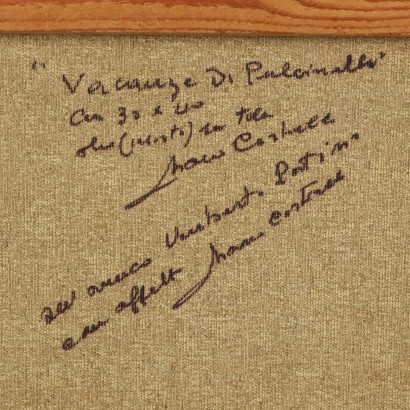 "Vacanze Di Pulcinella"
cm 30 x 40
olio (misto) su tela
Mario Costella
all'amico Umberto
con affetto Mario Costella